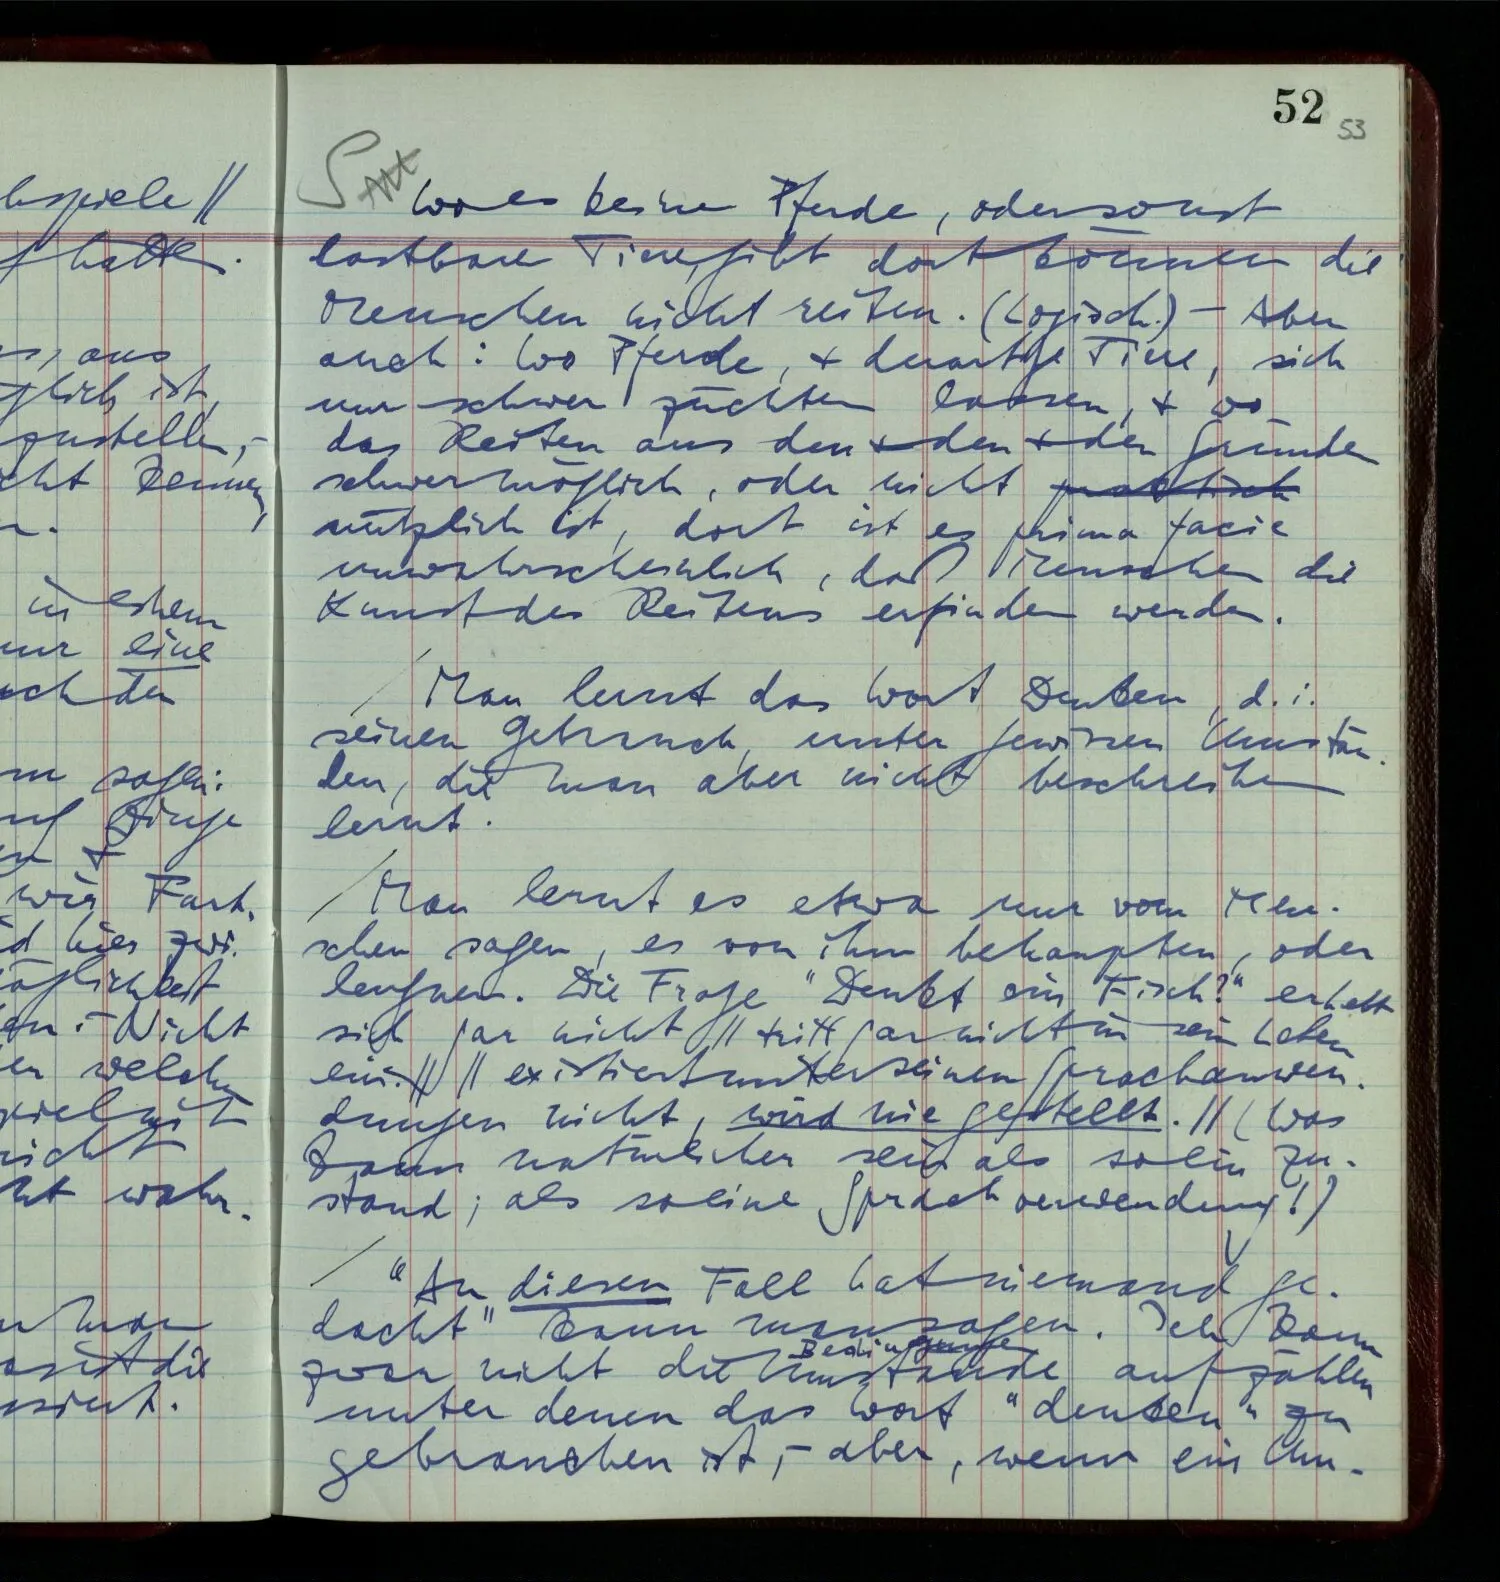 52
53
S
Wo es keine Pferde, oder sonst
lastbare Tiere, gibt dort können die
Menschen nicht reiten. (Logisch.) – Aber
auch: Wo Pferde, + derartige Tiere, sich
nur schwer züchten lassen, + wo
das Reiten aus den + den + den Gründen
schwer möglich, oder nicht praktisch
nützlich ist, dort ist es prima facie
unwahrscheinlich, daß Menschen die
Kunst des Reitens erfinden werden.
/ Man lernt das Wort Denken, d.i.
seinen Gebrauch, unter gewissen Umstän-
den, die man aber nicht beschreiben
lernt.
/ Man lernt es etwa nur vom Men-
schen sagen, es von ihm behaupten, oder
leugnen. Die Frage "Denkt ein Fisch?" erhebt
sich gar nicht // tritt gar nicht in sein Leben
ein. // // existiert unter seinen Sprachanwen-
dungen nicht, wird nie gestellt. // (Was
kann natürlicher sein als so ein Zu-
stand; als so eine Sprachverwendung!)
/ "An diesen Fall hat niemand ge-
dacht" kann man sagen. Ich kann
Bedingunge
zwar nicht die Umstände aufzählen
unter denen das Wort "denken" zu
gebrauchen ist, – aber, wenn ein Um-
bspiele //
hatte.
s, aus
glich ist,
zustellen, –
cht kennen,
n.
in einem
nur eine
sagen:
Dinge
+
wir Farb-
d hier zwi-
öglichkeit
en: Nicht
er welche
nicht
wahr-
man
die